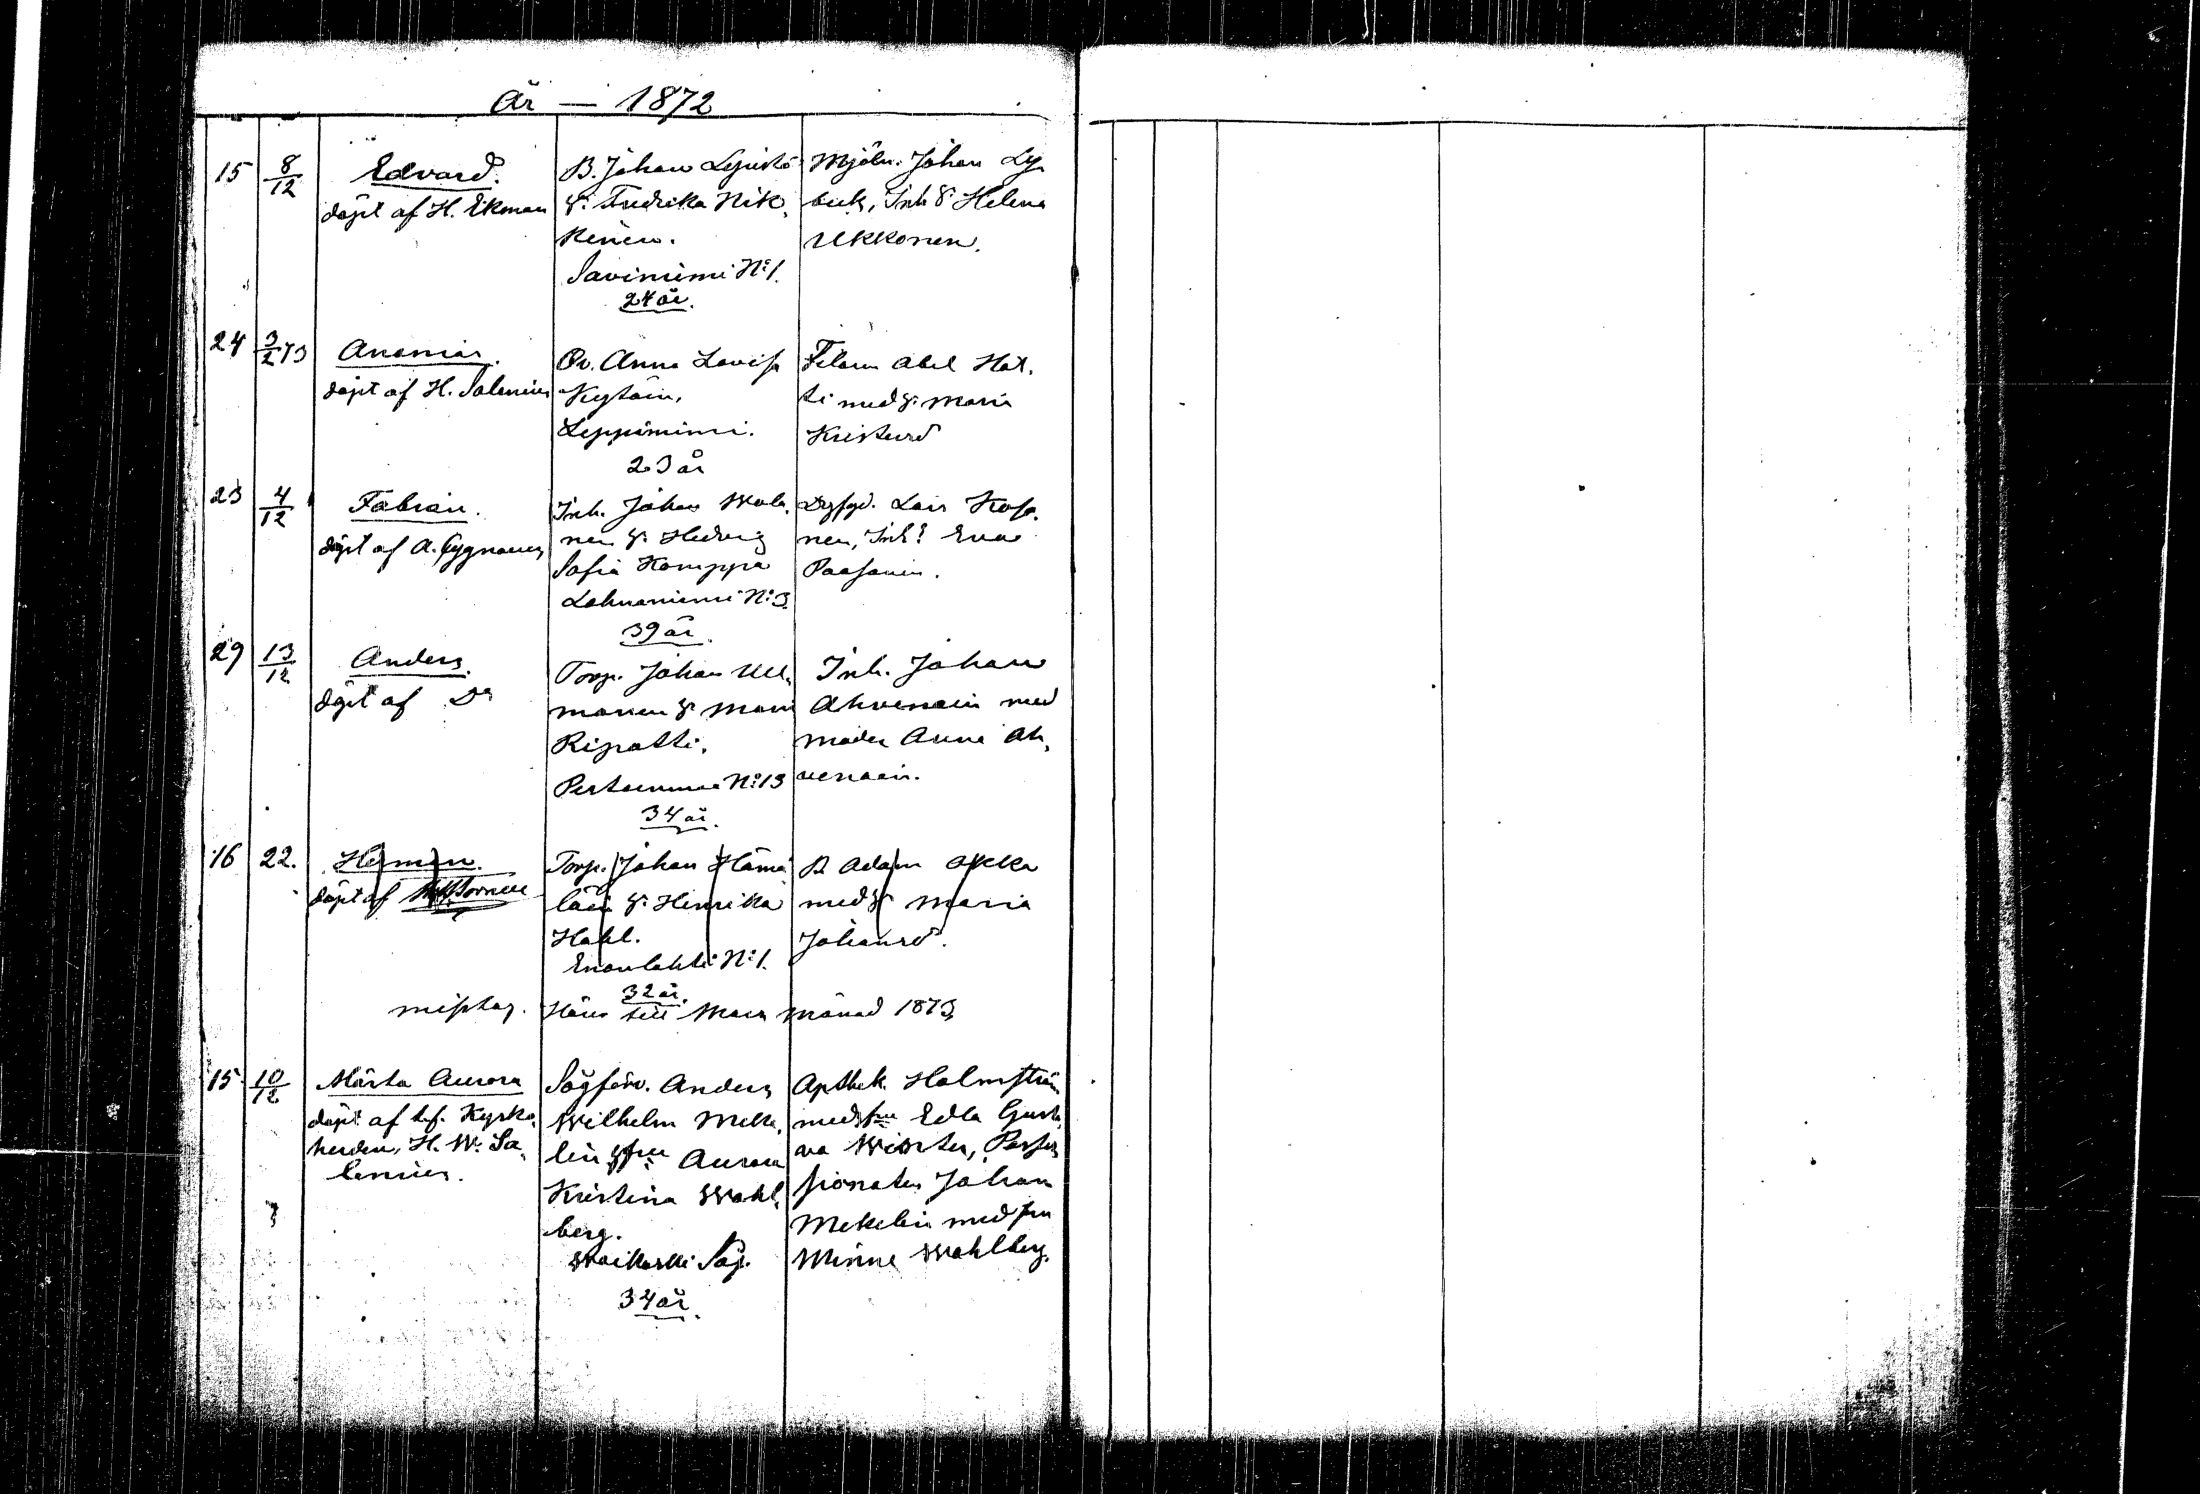 År — 1872
15 8/12 Edvard.
döpt af H. Ekman
B. Johan Lepistö
h. Fredrika Nik,
kenen.
Saviniemi N:o 1.
24 år.
Mjöln. Johan Ly
beck, Inh h. Helena
Ukkonen.
24 3/2 73 Ananias.
döpt af H. Salenius
Qv. Anna Lovisa
Leppiniemi.
23 år
Abel Hat,
ti med h. Maria
Kristersd
23 4/12 Fabian.
döpt af A. Cygnaeus
Inh. Johan
nen h. Hedvig
Sofia Komppa
Lahnaniemi N:o 3.
39 år.
Lars Koso,
nen, Inh: Eva
Paasonen.
29 13/12 Anders.
döpt af D:o
Torp. Johan Ull,
manen h. Maria
Ripatti.
Pertunmaa N:o 13
34 år.
Inh. Johan
Ahvenain med
moder Anna Ah,
venain.
16 22. Herman.
döpt af
Torp. Johan Hämä
läin h. Henrika
Hahl.
Enonlahti N:o 1.
32 år.
B Adam Okka
med h. Maria
Johansd.
misstag. Hörer till Mars månad 1873
15 10/12 Märta Aurora
döpt af t.f. Kyrko,
herden, H. W. Sa,
lenius.
Sågförv. Anders
Wilhelm Meke,
lin h fru Aurora
Kristina Wahl,
berg.
Woikoski Såg.
34 år.
Apthek. Holmström
med fru Edla Gusta,
va Winter, Posses
sionaten Johan
Mekelin med fru
Minne Wahlberg.